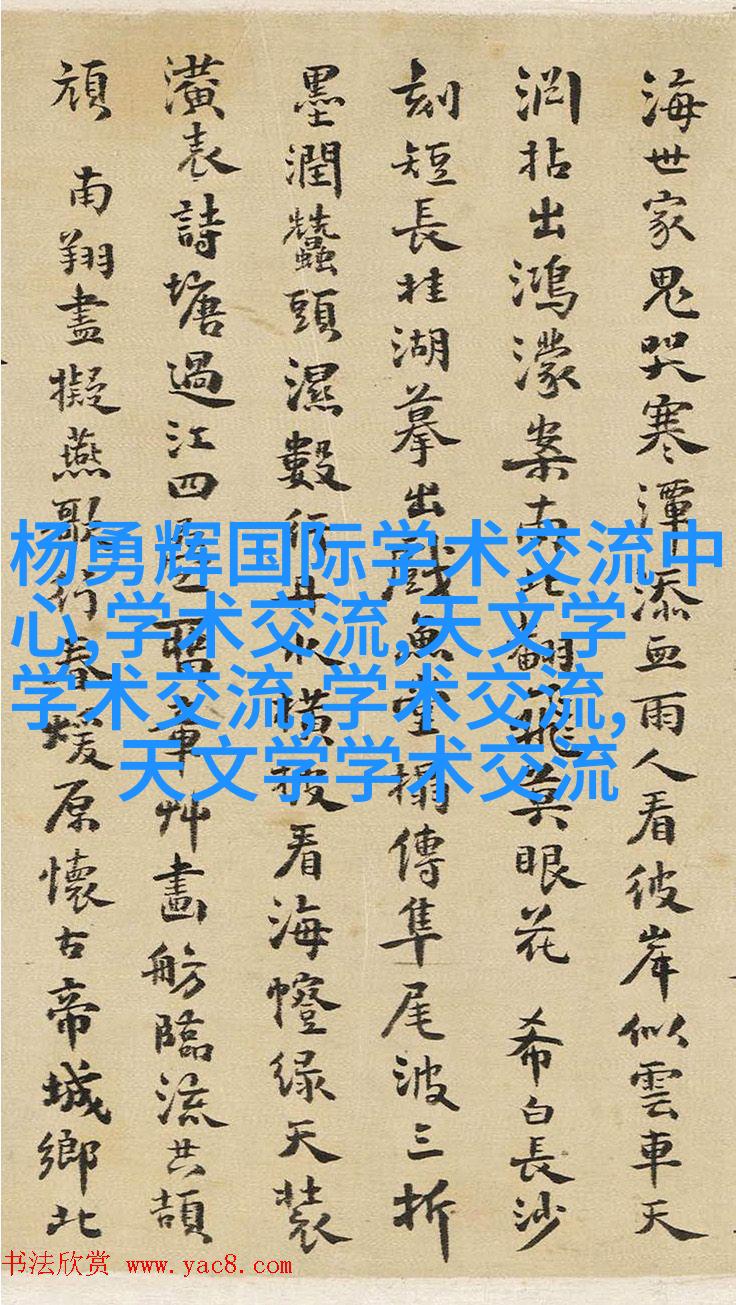 海世家鬼哭寒潭添血雨人看彼岸似雲車天
拈出鴻濛案翻飛莫眼花 希白長沙
刻短長桂湖摹出戲魚堂搨傳隼尾波三折
墨潤蠶頭濕數行丹水橫披看海幢綠天裝
潢表詩塘過江四章艸畫舫臨流共頡
頏 南翔盡擬燕歌行春煖原懷古帝城鄉北
杨勇辉国际学术交流中
心,学术交流,天文学
学术交流,学术交流,
天文学学术交流
书法欣赏 www.yac8.com